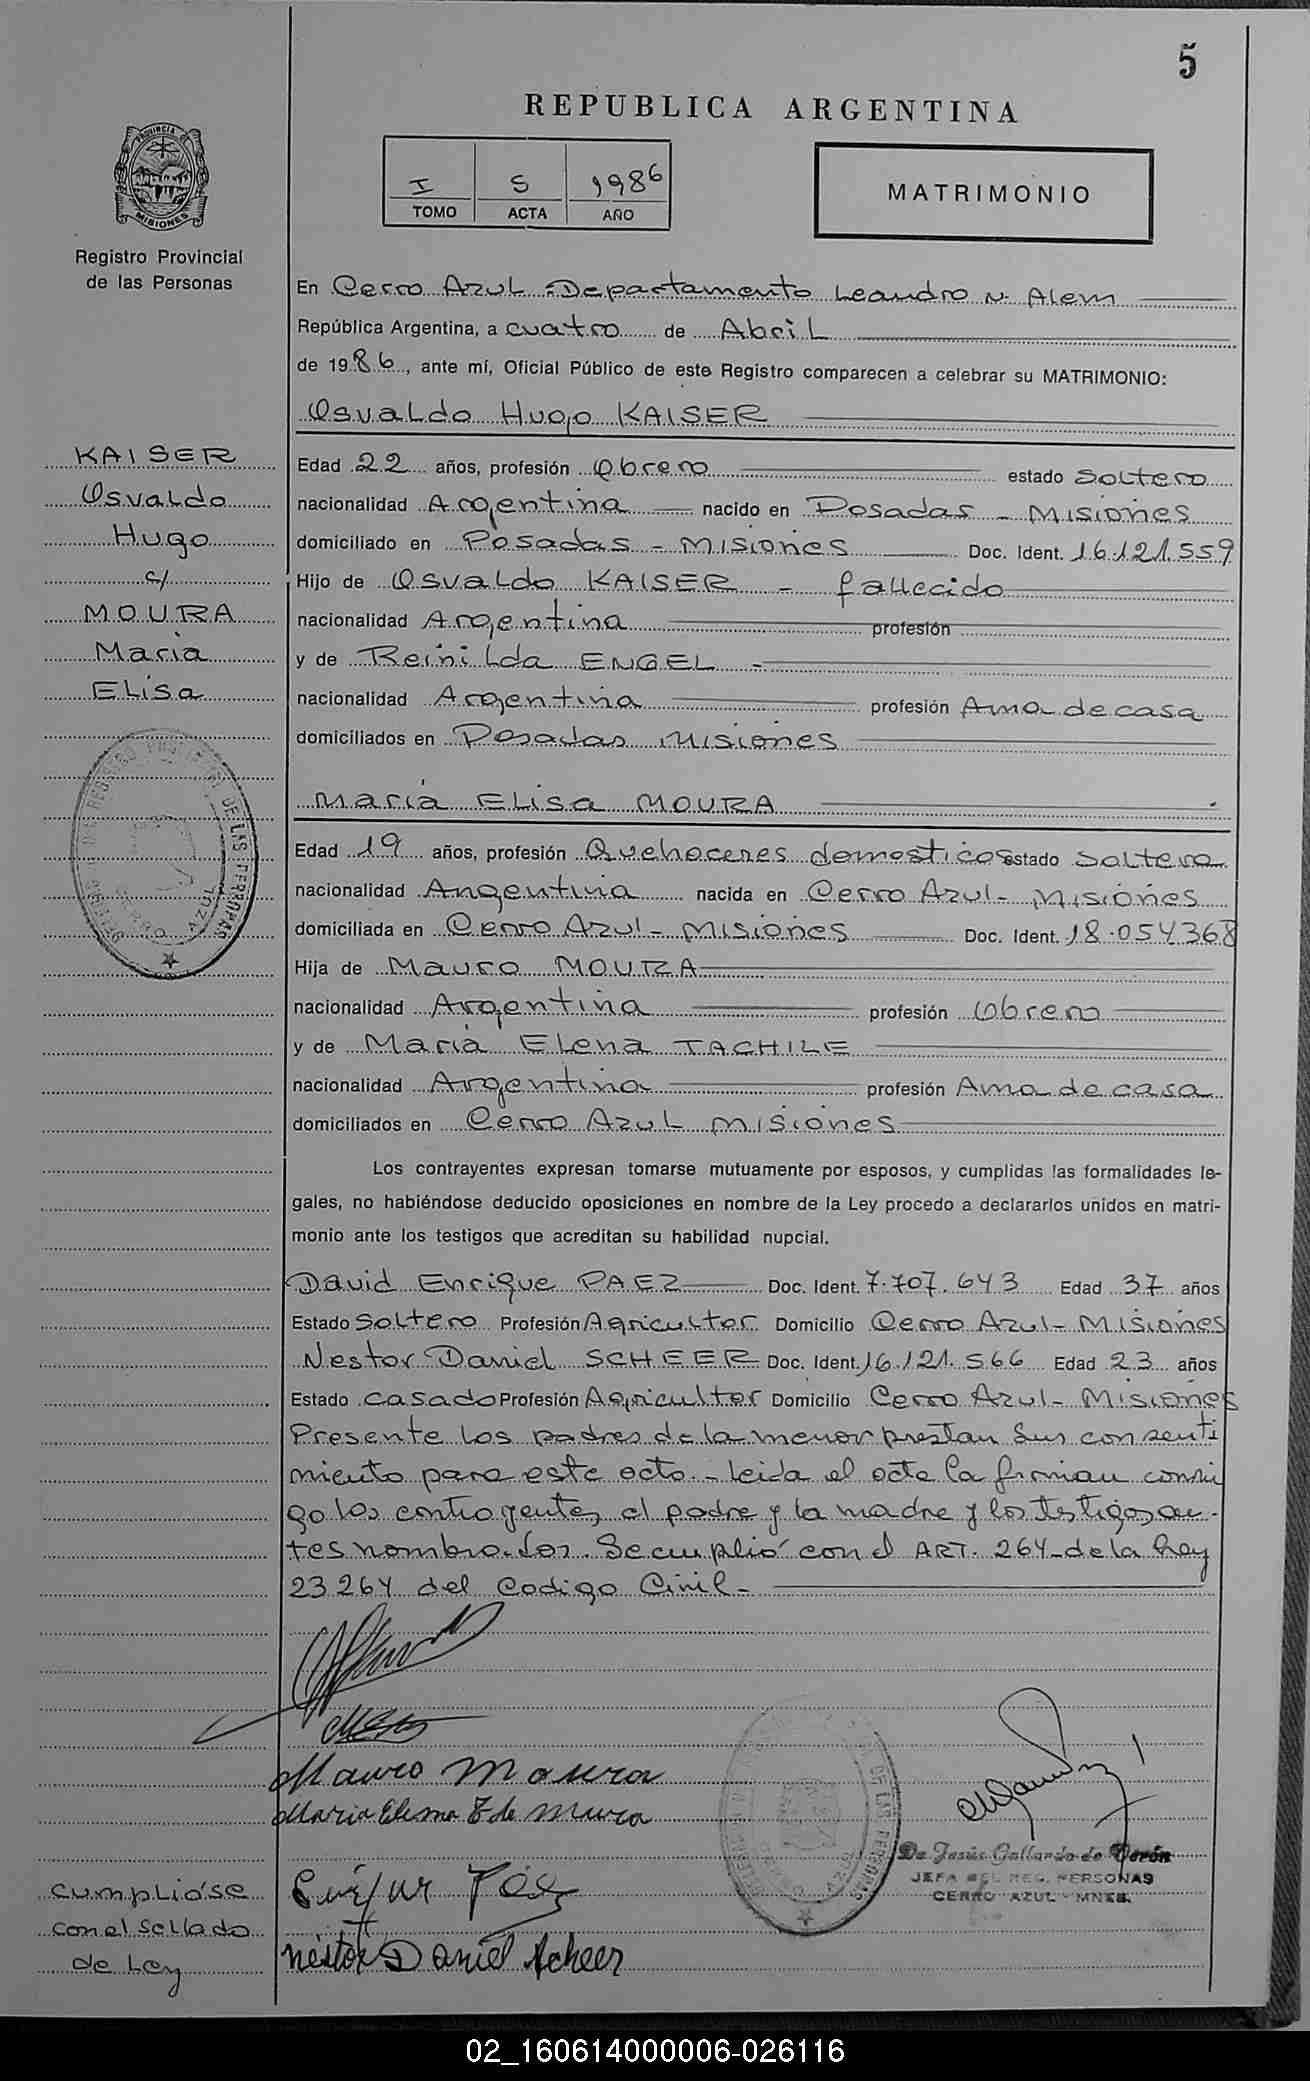 5
REPUBLICA ARGENTINA
PROVINCIA DE
MISIONES
Registro Provincial
de las Personas
I S 1986
TOMO ACTA AÑO
MATRIMONIO
En Cerro Azul Departamento Leandro N. Alem
República Argentina, a cuatro de Abril
de 1986, ante mí, Oficial Público de este Registro comparecen a celebrar su MATRIMONIO:
Osvaldo Hugo KAISER
KAISER
Osvaldo
Hugo
c/
MOURA
Maria
Elisa
Edad 22 años, profesión Obrero estado Soltero
nacionalidad Argentina nacido en Posadas - Misiones
domiciliado en Posadas - Misiones Doc. Ident. 16.121.559
Hijo de Osvaldo KAISER - fallecido
nacionalidad Argentina profesión
y de Reinilda ENGEL -
nacionalidad Argentina profesión Ama de casa
domiciliados en Posadas Misiones
Maria Elisa MOURA
Edad 19 años, profesión Quehaceres domesticos estado Soltera
nacionalidad Argentina nacida en Cerro Azul - Misiones
domiciliada en Cerro Azul - Misiones Doc. Ident. 18.054368
Hija de Mauro MOURA
nacionalidad Argentina profesión Obrero
y de Maria Elena TACHILE
nacionalidad Argentina profesión Ama de casa
domiciliados en Cerro Azul Misiones
Los contrayentes expresan tomarse mutuamente por esposos, y cumplidas las formalidades le-
gales, no habiéndose deducido oposiciones en nombre de la Ley procedo a declararlos unidos en matri-
monio ante los testigos que acreditan su habilidad nupcial.
David Enrique PAEZ Doc. Ident. 7.707.643 Edad 37 años
Estado Soltero Profesión Agricultor Domicilio Cerro Azul - Misiones
Nestor Daniel SCHEER Doc. Ident. 16.121.566 Edad 23 años
Estado casado Profesión Agricultor Domicilio Cerro Azul - Misiones
Presente los padres de la menor prestan sus consenti
miento para este acto. - Leida el acta la firman conmi
go los contrayentes, el padre y la madre y los testigos an-
tes nombrados. Se cumplió con el ART. 264 - de la Ley
23264 del Codigo Civil -
Mauro Moura
Maria Elena T de Mura
De Jesús Gallardo de Verón
JEFA DEL REG. PERSONAS
CERRO AZUL - MNES.
cumplióse
con el sellado
de Ley
Nestor Daniel Scheer
02_160614000006-026116